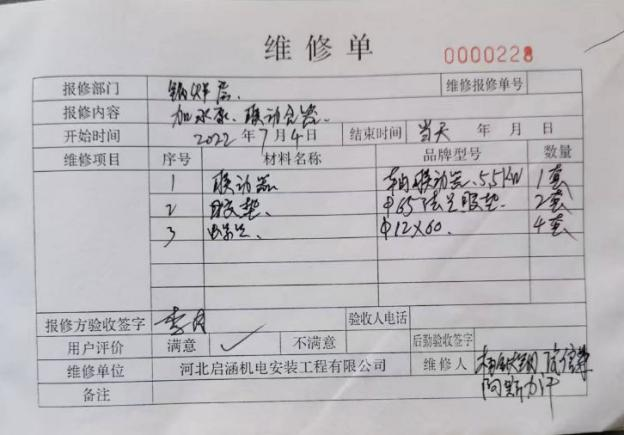 维修单
0000228
报修部门 锅炉房. 维修报修单号
报修内容 加水泵.联动仓器.
开始时间 2022年7月4日 结束时间 当天 年 月 日
维修项目 序号 材料名称 品牌型号 数量
1 联动器 联动器.5.5KW 1套
2 胶垫. Φ65法兰胶垫 2套
3 螺丝. Φ12X60. 4套
报修方验收签字 李 验收人电话
用户评价 满意 ✓ 不满意 后勤验收签字
维修单位 河北启涵机电安装工程有限公司 维修人
阿斯力汗
备注